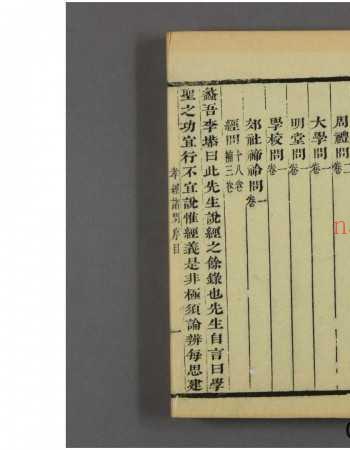 周禮問二卷
大學問一卷
明堂問一卷
學校問一卷
郊社禘祫問一卷
經問十八卷補三卷
蠡吾李塨曰此先生說經之餘錄也先生自言曰學
聖之功宜行不宜說惟經義是非極須論辨每思建
孝經諸問序目 一